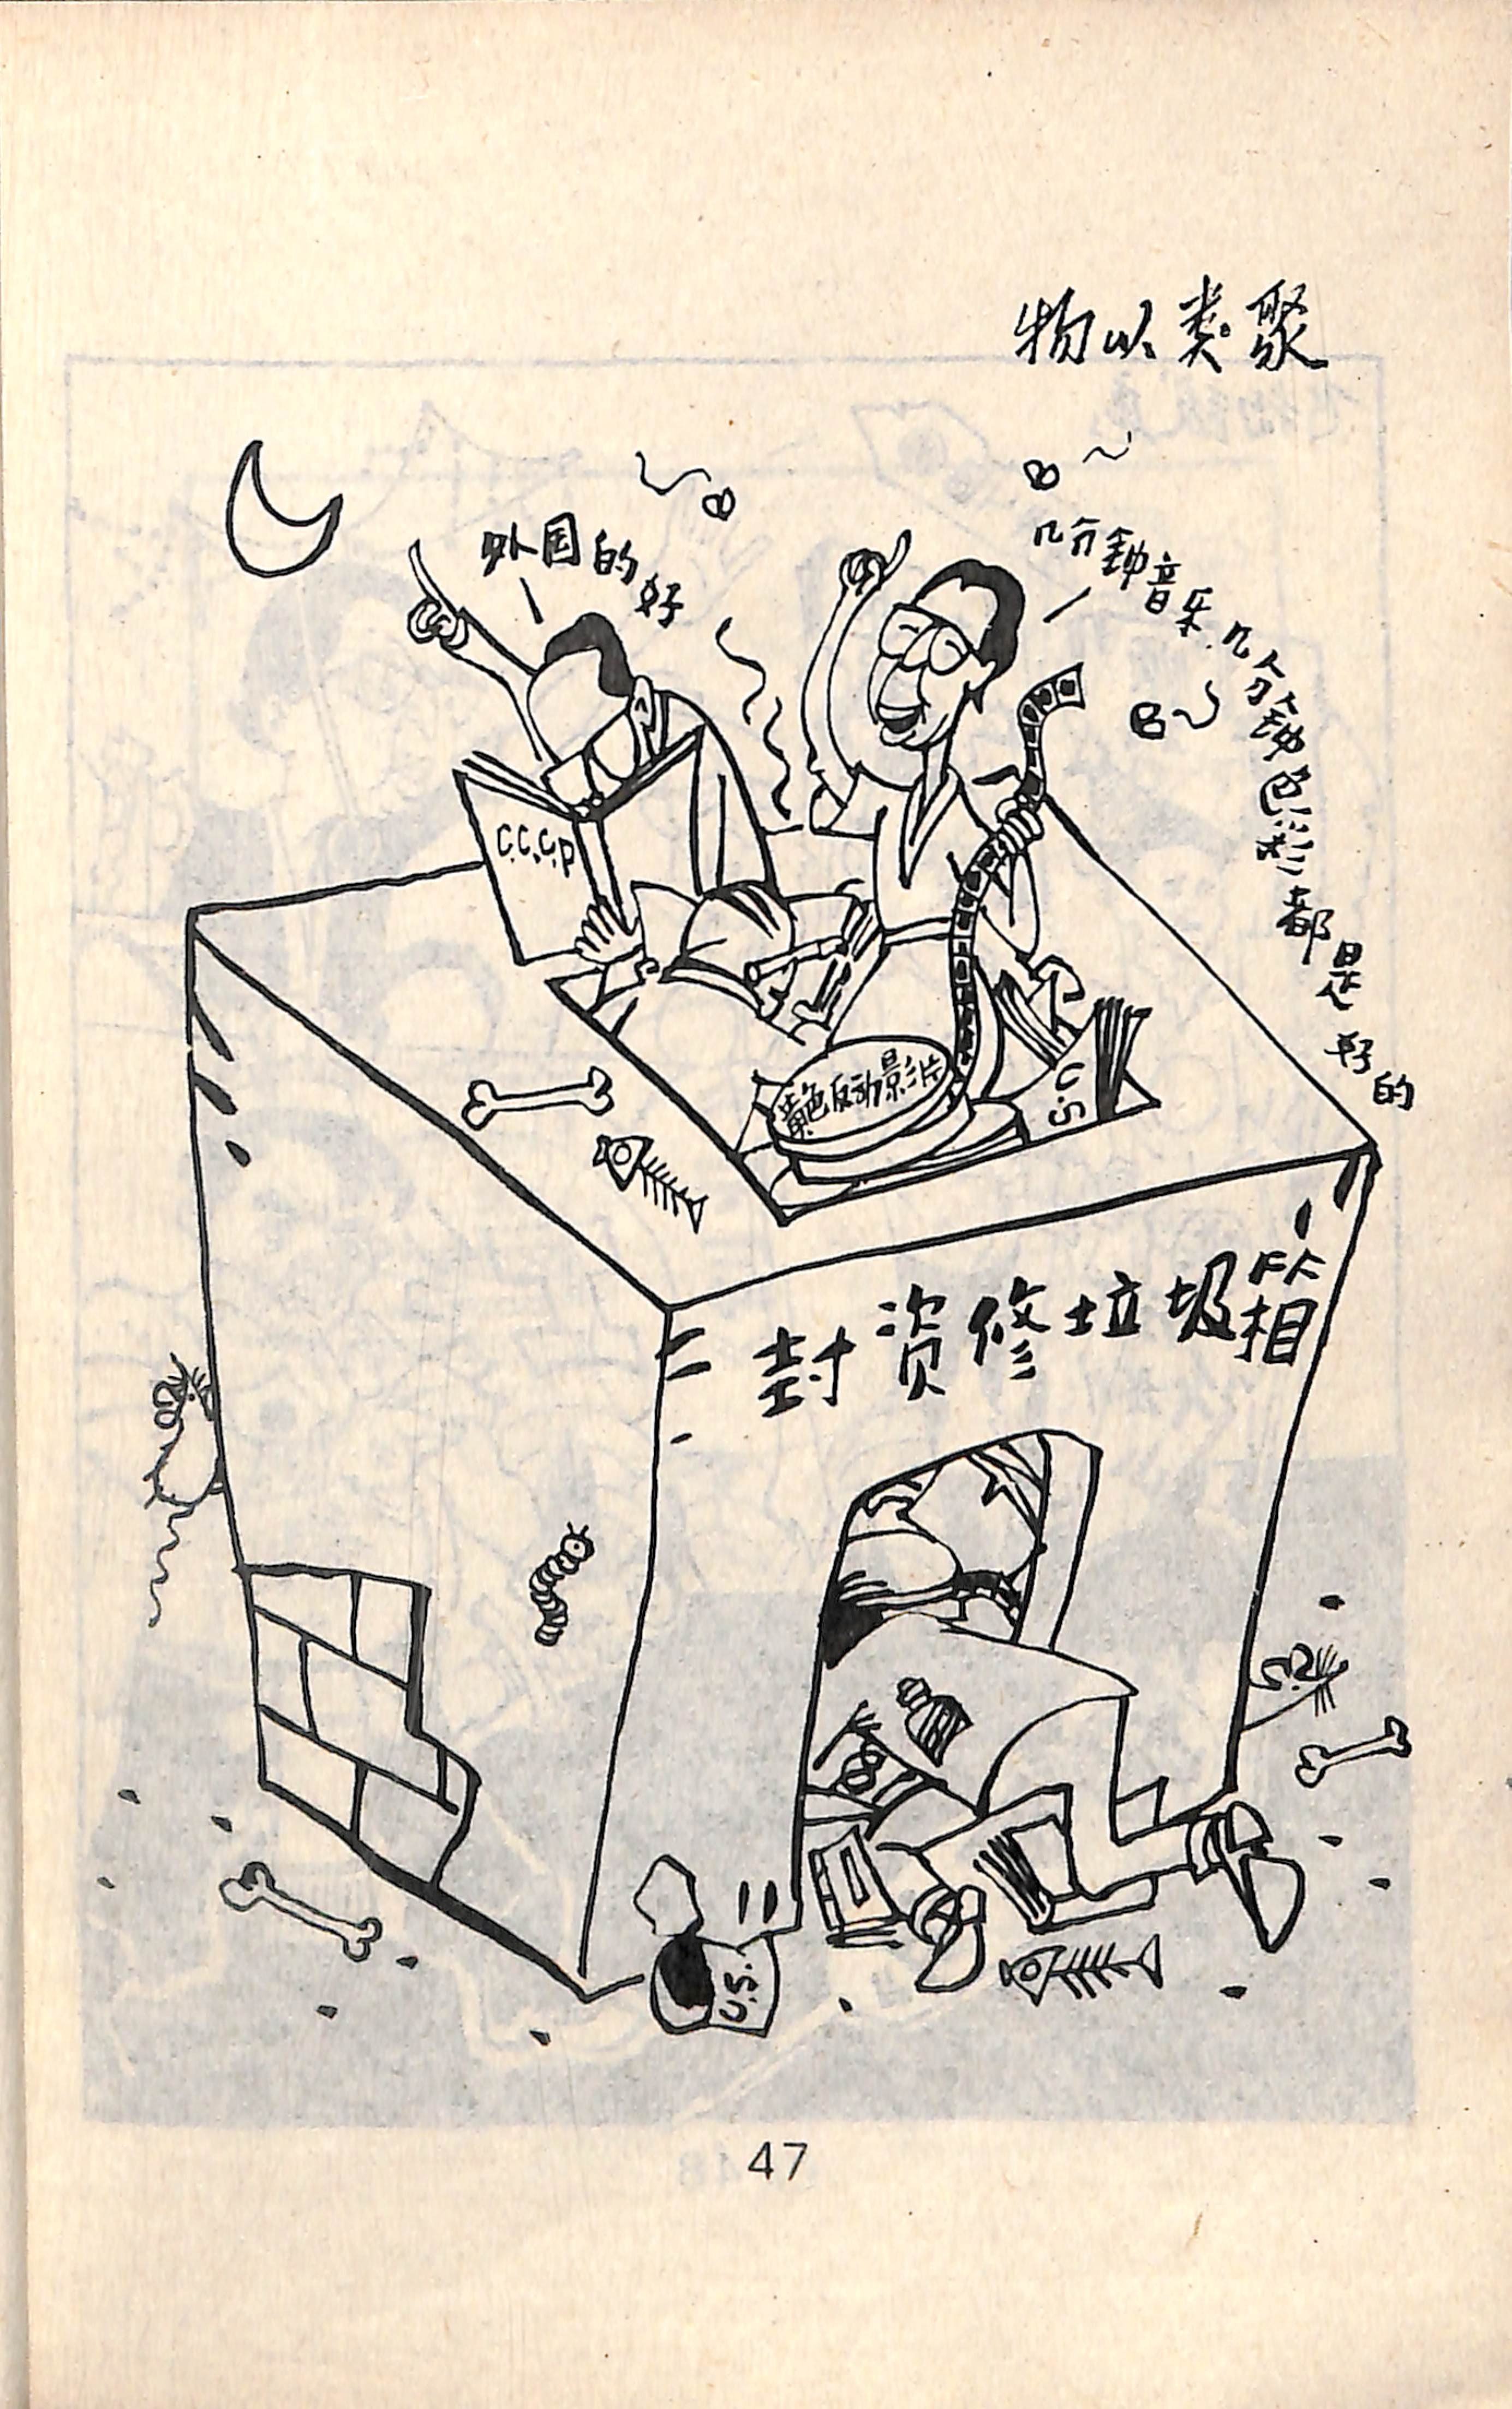 物以类聚
外国的好
几分钟音乐.几分钟色彩都是好的
C.C.C.P
黄色反动影片
U.S
封资修垃圾箱
U.S.
47